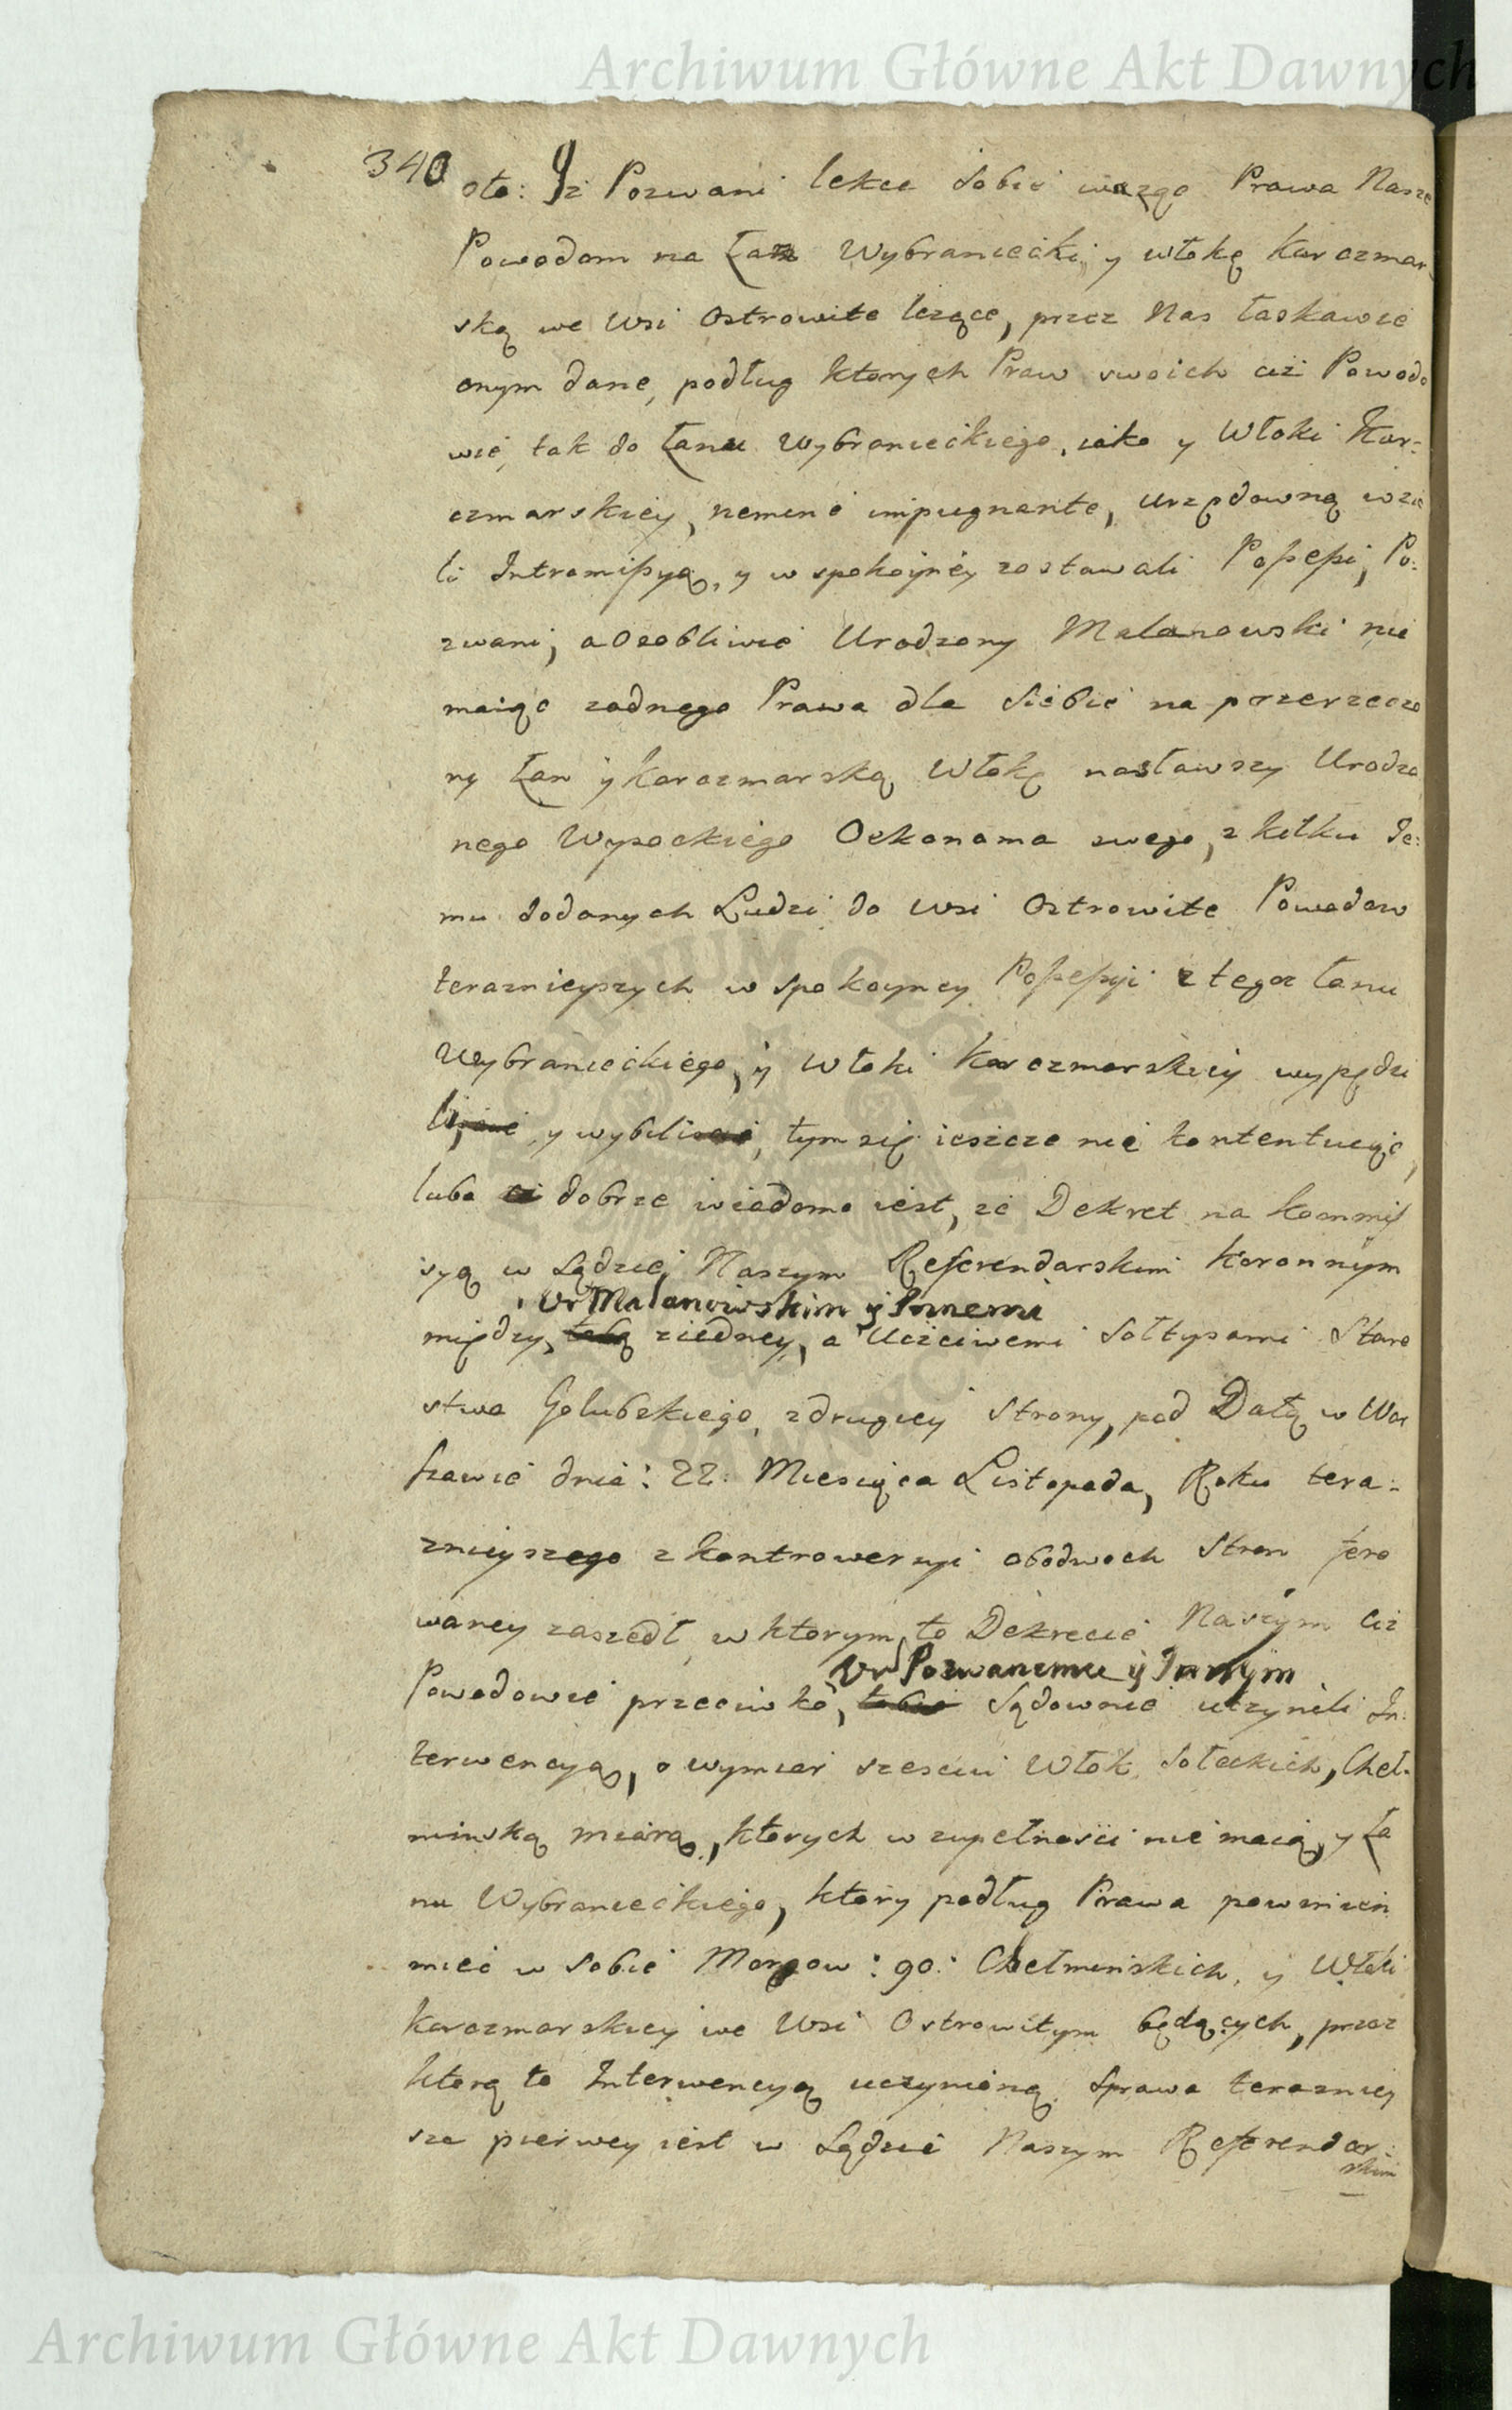 Archiwum Główne Akt Dawnych
340
oto: Iż Pozwani lekce sobie ważąc Prawa Nasze
Powodom na Łan Wybraniecki, y włokę karczmar-
ską we Wsi Ostrowite leżące, przez Nas łaskawie
onym dane, podług ktorych Praw swoich ciż Powodo
wie, tak do Łanu Wybranieckiego, iako y Włoki Kar-
czmarskiey, nemine impugnante, urzędowną wzie
li Intromissyą, y w spokoyney zostawali Possessi, Po-
zwani, a osobliwie Urodzony Malanowski nie
maiąc zadnego Prawa dla siebie na przerzeczo
ny Łan y karczmarską Włokę nasławszy Urodzo
nego Wysockiego Oekonoma swego, z kilku Je-
mu dodanych Ludzi do Wsi Ostrowite Powodow
teraznieyszych w spokoyney Possessyi z tegoz Łanu
Wybranieckiego, y Włoki karczmarskiey wypędzi
li, y wybili, tym się ieszcze nie kontentuiąc,
lubo dobrze wiadomo iest, że Dekret na kommis
syą w Sądzie Naszym Referendarskim koronnym
Ur Malanowskim y Innemi
między, z iedney, a Uczciwemi Sołtysami Staro
stwa Golubskiego, z drugiey strony, pod Datą w War
szawie dnia: 22. Miesiąca Listopada, Roku tera-
znieyszego z kontrowersyi obodwoch stron fero
waney zaszedł, w ktorym to Dekrecie Naszym ciż
Ur Pozwanemu y Innym
Powodowie przeciwko, Sądownie uczynili In-
terwencyą, o wymiar sześciu Włok Sołeckich, Cheł-
minską miarą, ktorych w zupełności nie maią, y Ła
nu Wybranieckiego, ktory podług Prawa powinien
mieć w sobie Morgow: 90: Chełminskich, y Włoki
karczmarskiey we Wsi Ostrowitym będących, przez
ktorą to Interwencyą uczynioną Sprawa terazniey
sza pierwey iest w Sądzie Naszym Referendar-
skim
Archiwum Główne Akt Dawnych